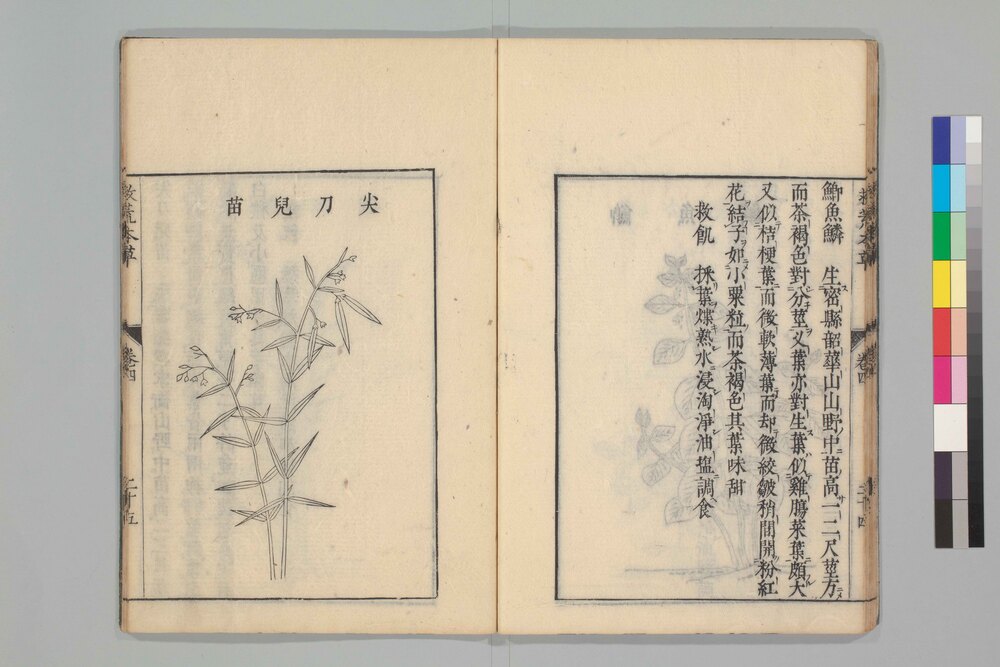 鯽魚鱗　生密縣韶華山山野中苗高一二尺莖方
而茶褐色對分莖叉葉亦對生葉似雞膓菜葉頗大
又似桔梗葉而微軟薄葉而却微紋皺稍間開粉紅
花結子如小粟粒而茶褐色其葉味甜
救飢　採葉煠熟水浸淘淨油塩調食
救荒本草
卷四
二十四
尖刀兒苗
救荒本草
卷四
二十五